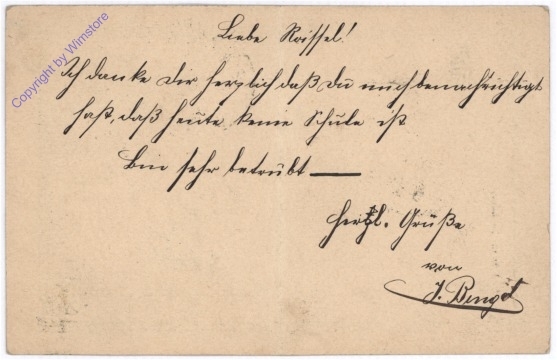 Liebe Roissel!
Ich danke Dir herzlich daß Du mich benachrichtigt
hast, daß heute keine Schule ist
Bin sehr betrübt —
Herzl. Grüße
von
J.
Copyright by Wimstore